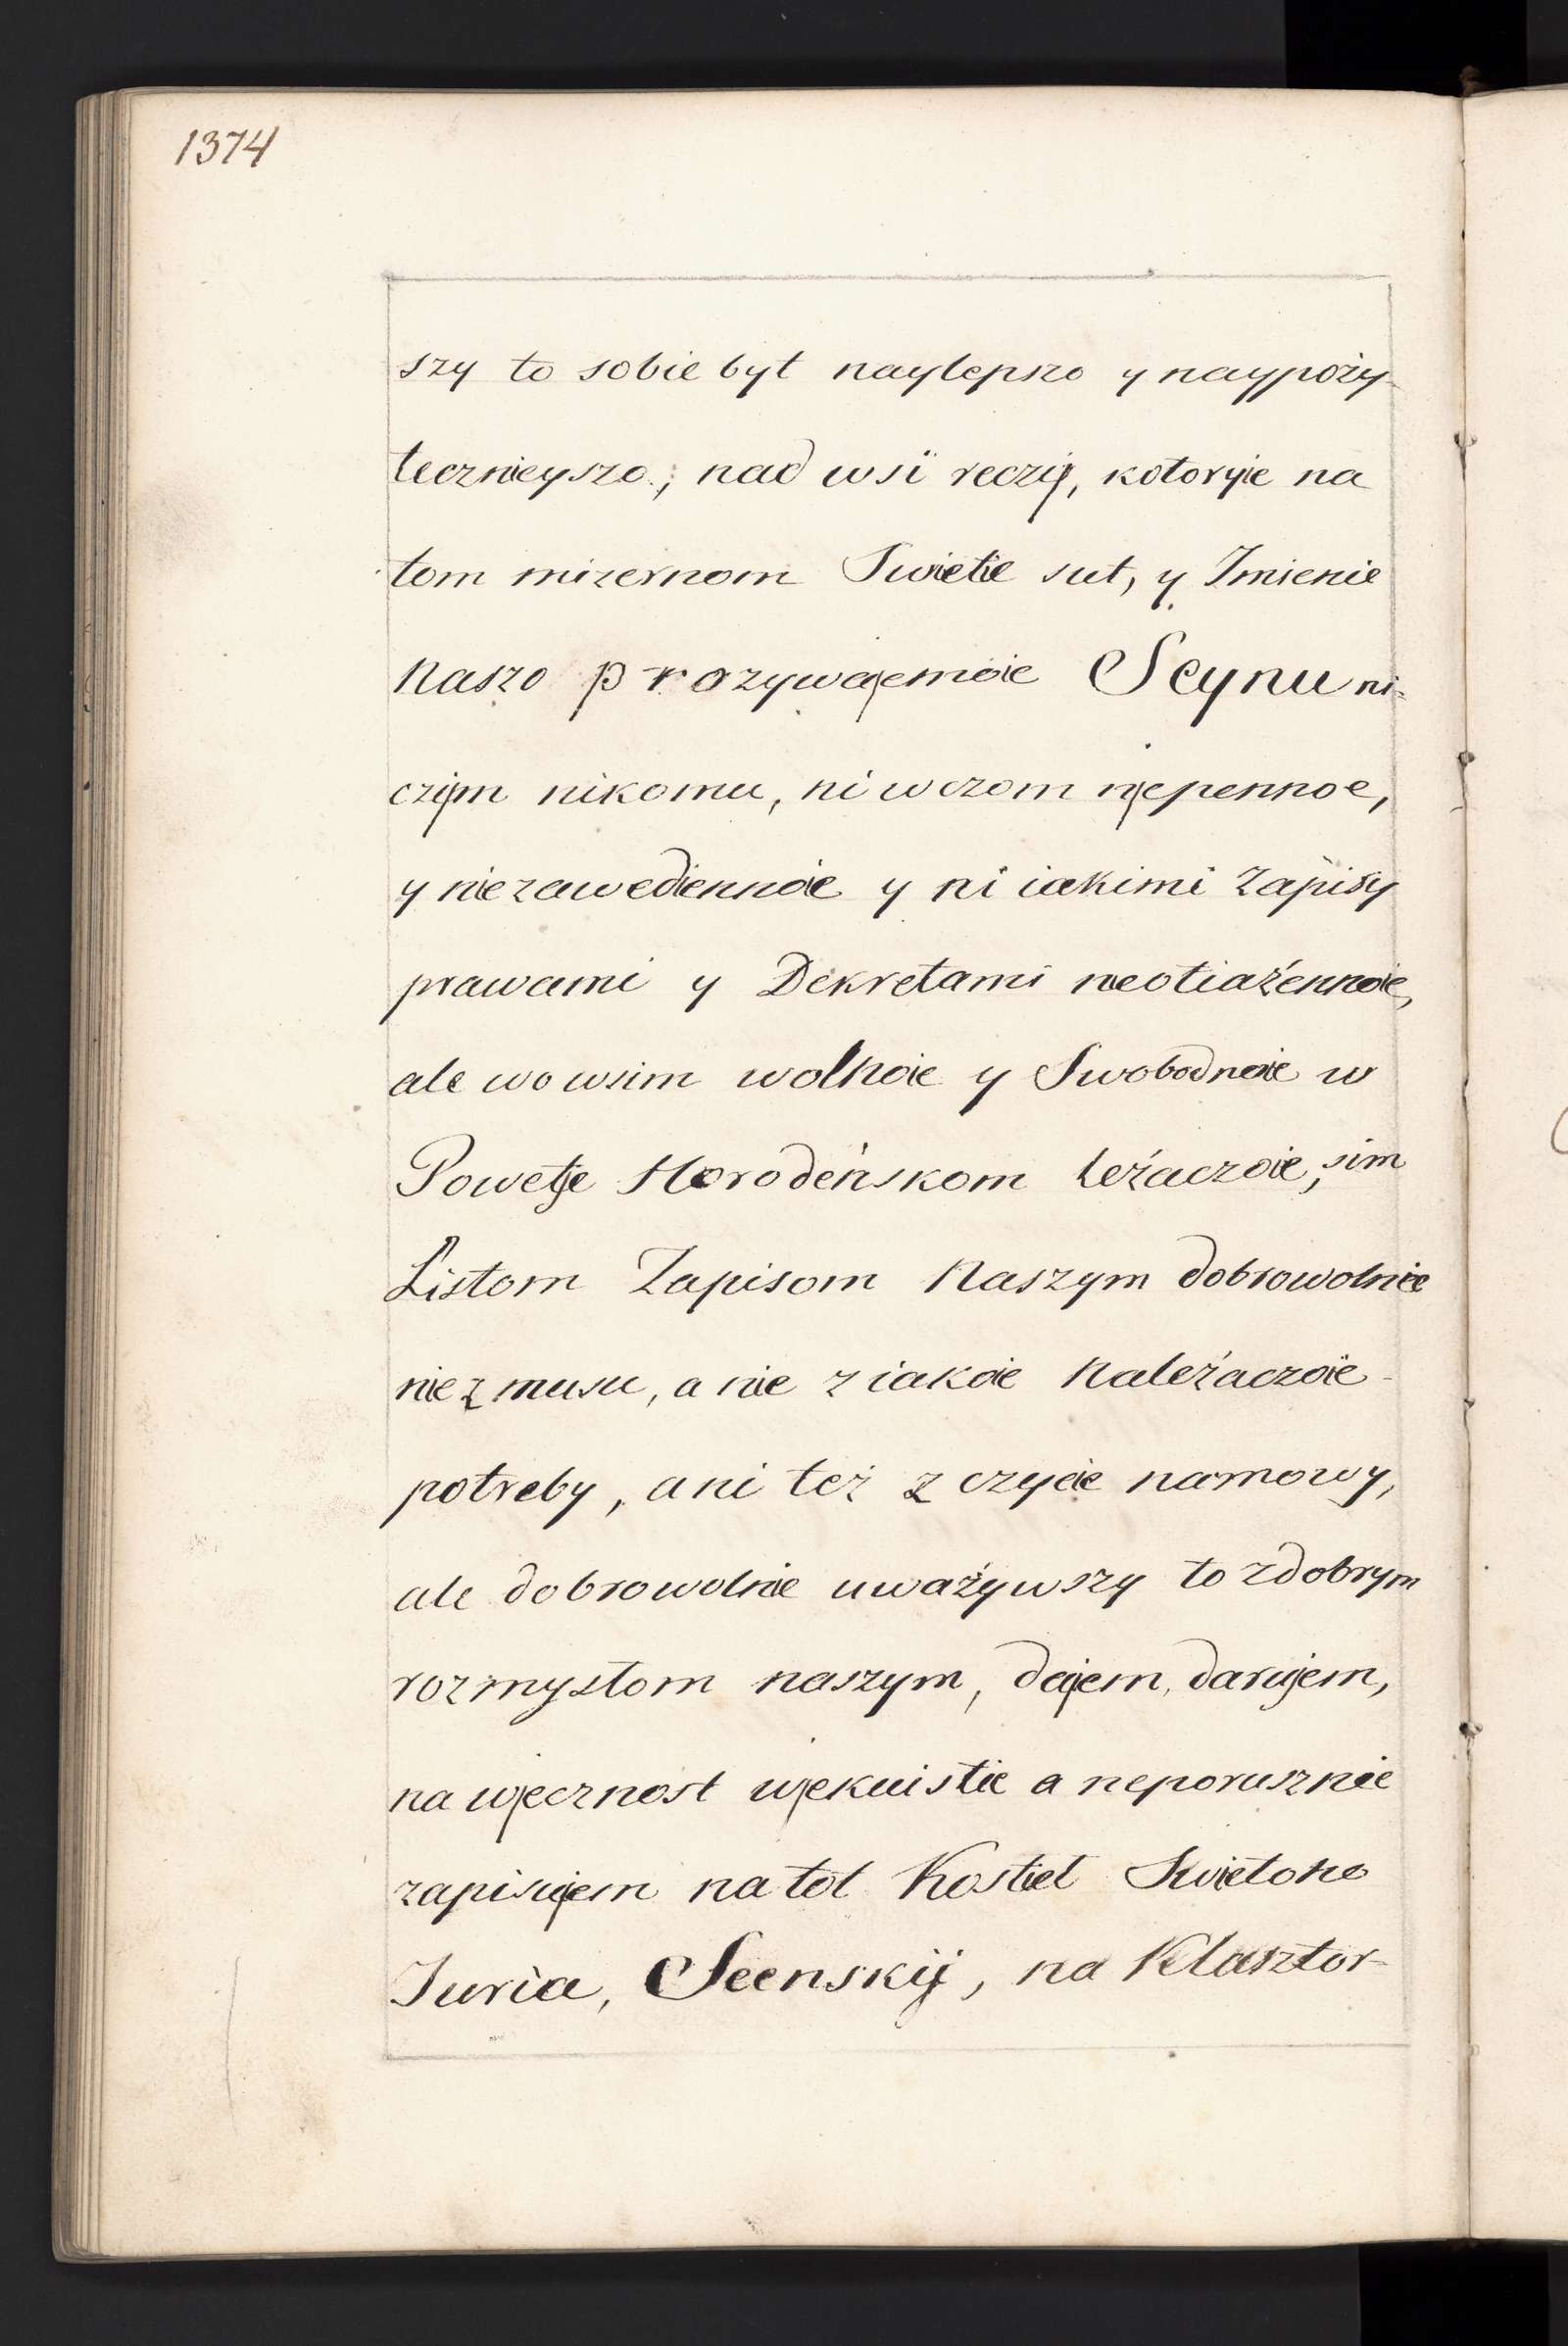 1374
szy to sobie byt naylepszo y naypoży-
tecznieyszo; nad wsi reczij, kotoryie na
tom mizernom Swietie sut, y Imienie
Naszo prozywajemoie Seynu ni-
czijm nikomu, ni w czom niepennoe,
y niezawediennoie y ni iakimi Zapisy
prawami y Dekretami neotiażennoie,
ale wo wsim wolnoie y Swobodnoie w
Powetje Horodeńskom leżaczoie, sim
Listom Zapisom Naszym dobrowolnie
nie z musu, a nie z iakoie Należaczoie
potreby, ani też z czyeie namowy,
ale dobrowolnie uważywszy to z dobrym
rozmysłom naszym, dajem, darujem,
na wjecznost wjekuistie a neporusznie
zapisujem na tot Kostiel Swietoho
Juria, Seenskij, na Klasztor-